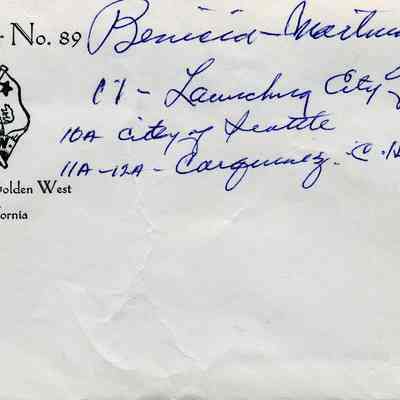 No. 89 Benicia-Martin
C1 - Launching City
10A City of Seattle
11A-12A - Carquinez. C.H
Golden West
fornia